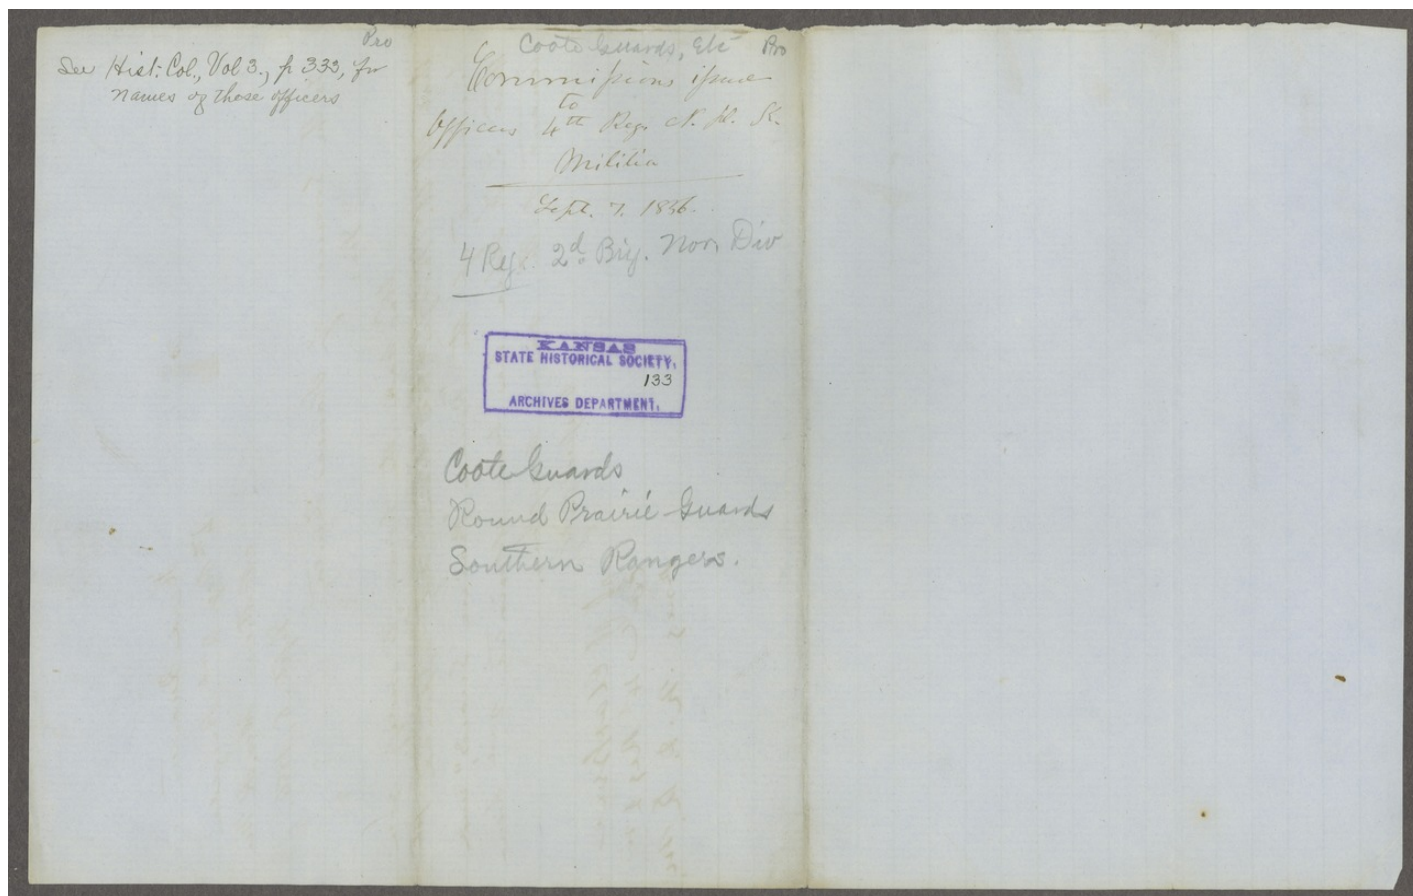 Pro
See Hist. Col., Vol 3., p 333, for
names of those officers
Coote Guards, Etc Pro
Commissions issue
to
Officers 4th Reg. N. K.
Militia
Sept. 7. 1856.
4 Reg. 2d Brig. Nor, Div
KANSAS
STATE HISTORICAL SOCIETY,
133
ARCHIVES DEPARTMENT.
Coote Guards
Round Prairie Guards
Southern Rangers.